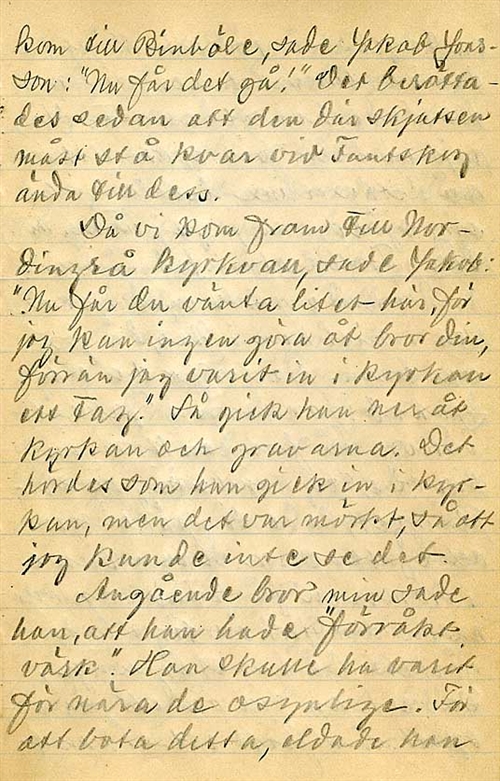 kom till Bönhöle, sade Jakob Jons-
son: "Nu får det gå!" Det berätta-
des sedan att den där skjutsen
måst stå kvar vid Fantskog
ända till dess.
Då vi kom fram till Nor-
dingrå kyrkvall, sade Jakob:
"Nu får du vänta litet här, för
jag kan ingen göra åt bror din,
förrän jag varit in i kyrkan
ett tag." Så gick han ner åt
kyrkan och gravarna. Det
hördes som han gick in i kyr-
kan, men det var mörkt, så att
jag kunde inte se det.
Angående bror min sade
han, att han hade "förråkt
värk". Han skulle ha varit
för nära de osynlige. För
att bota detta, eldade han